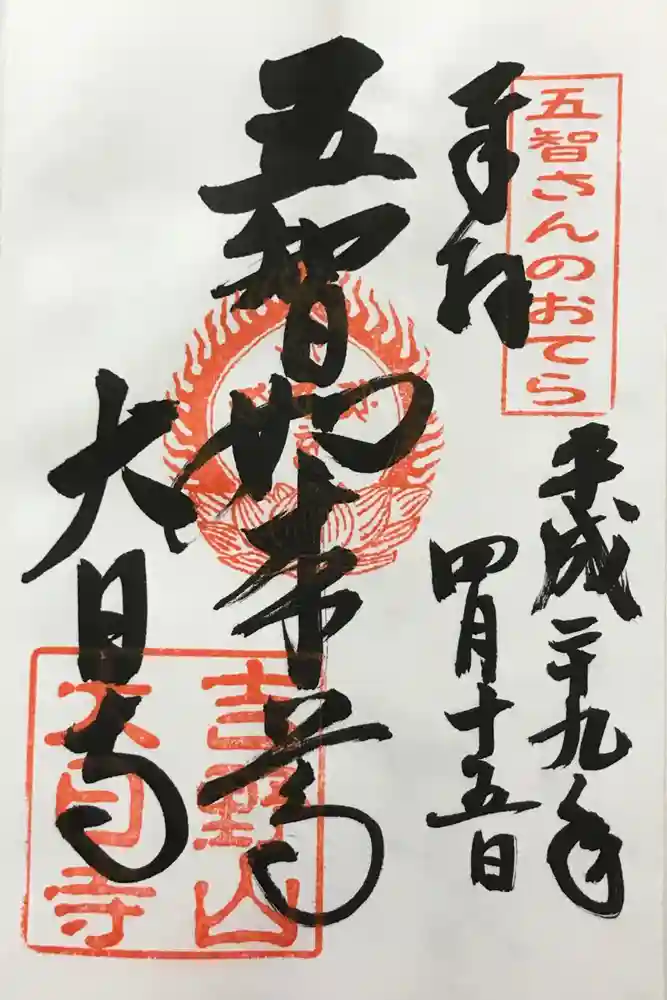 五智さんのおてら
奉拝
平成二十九年
四月十五日
五智如来
大日寺
吉野山
大日寺